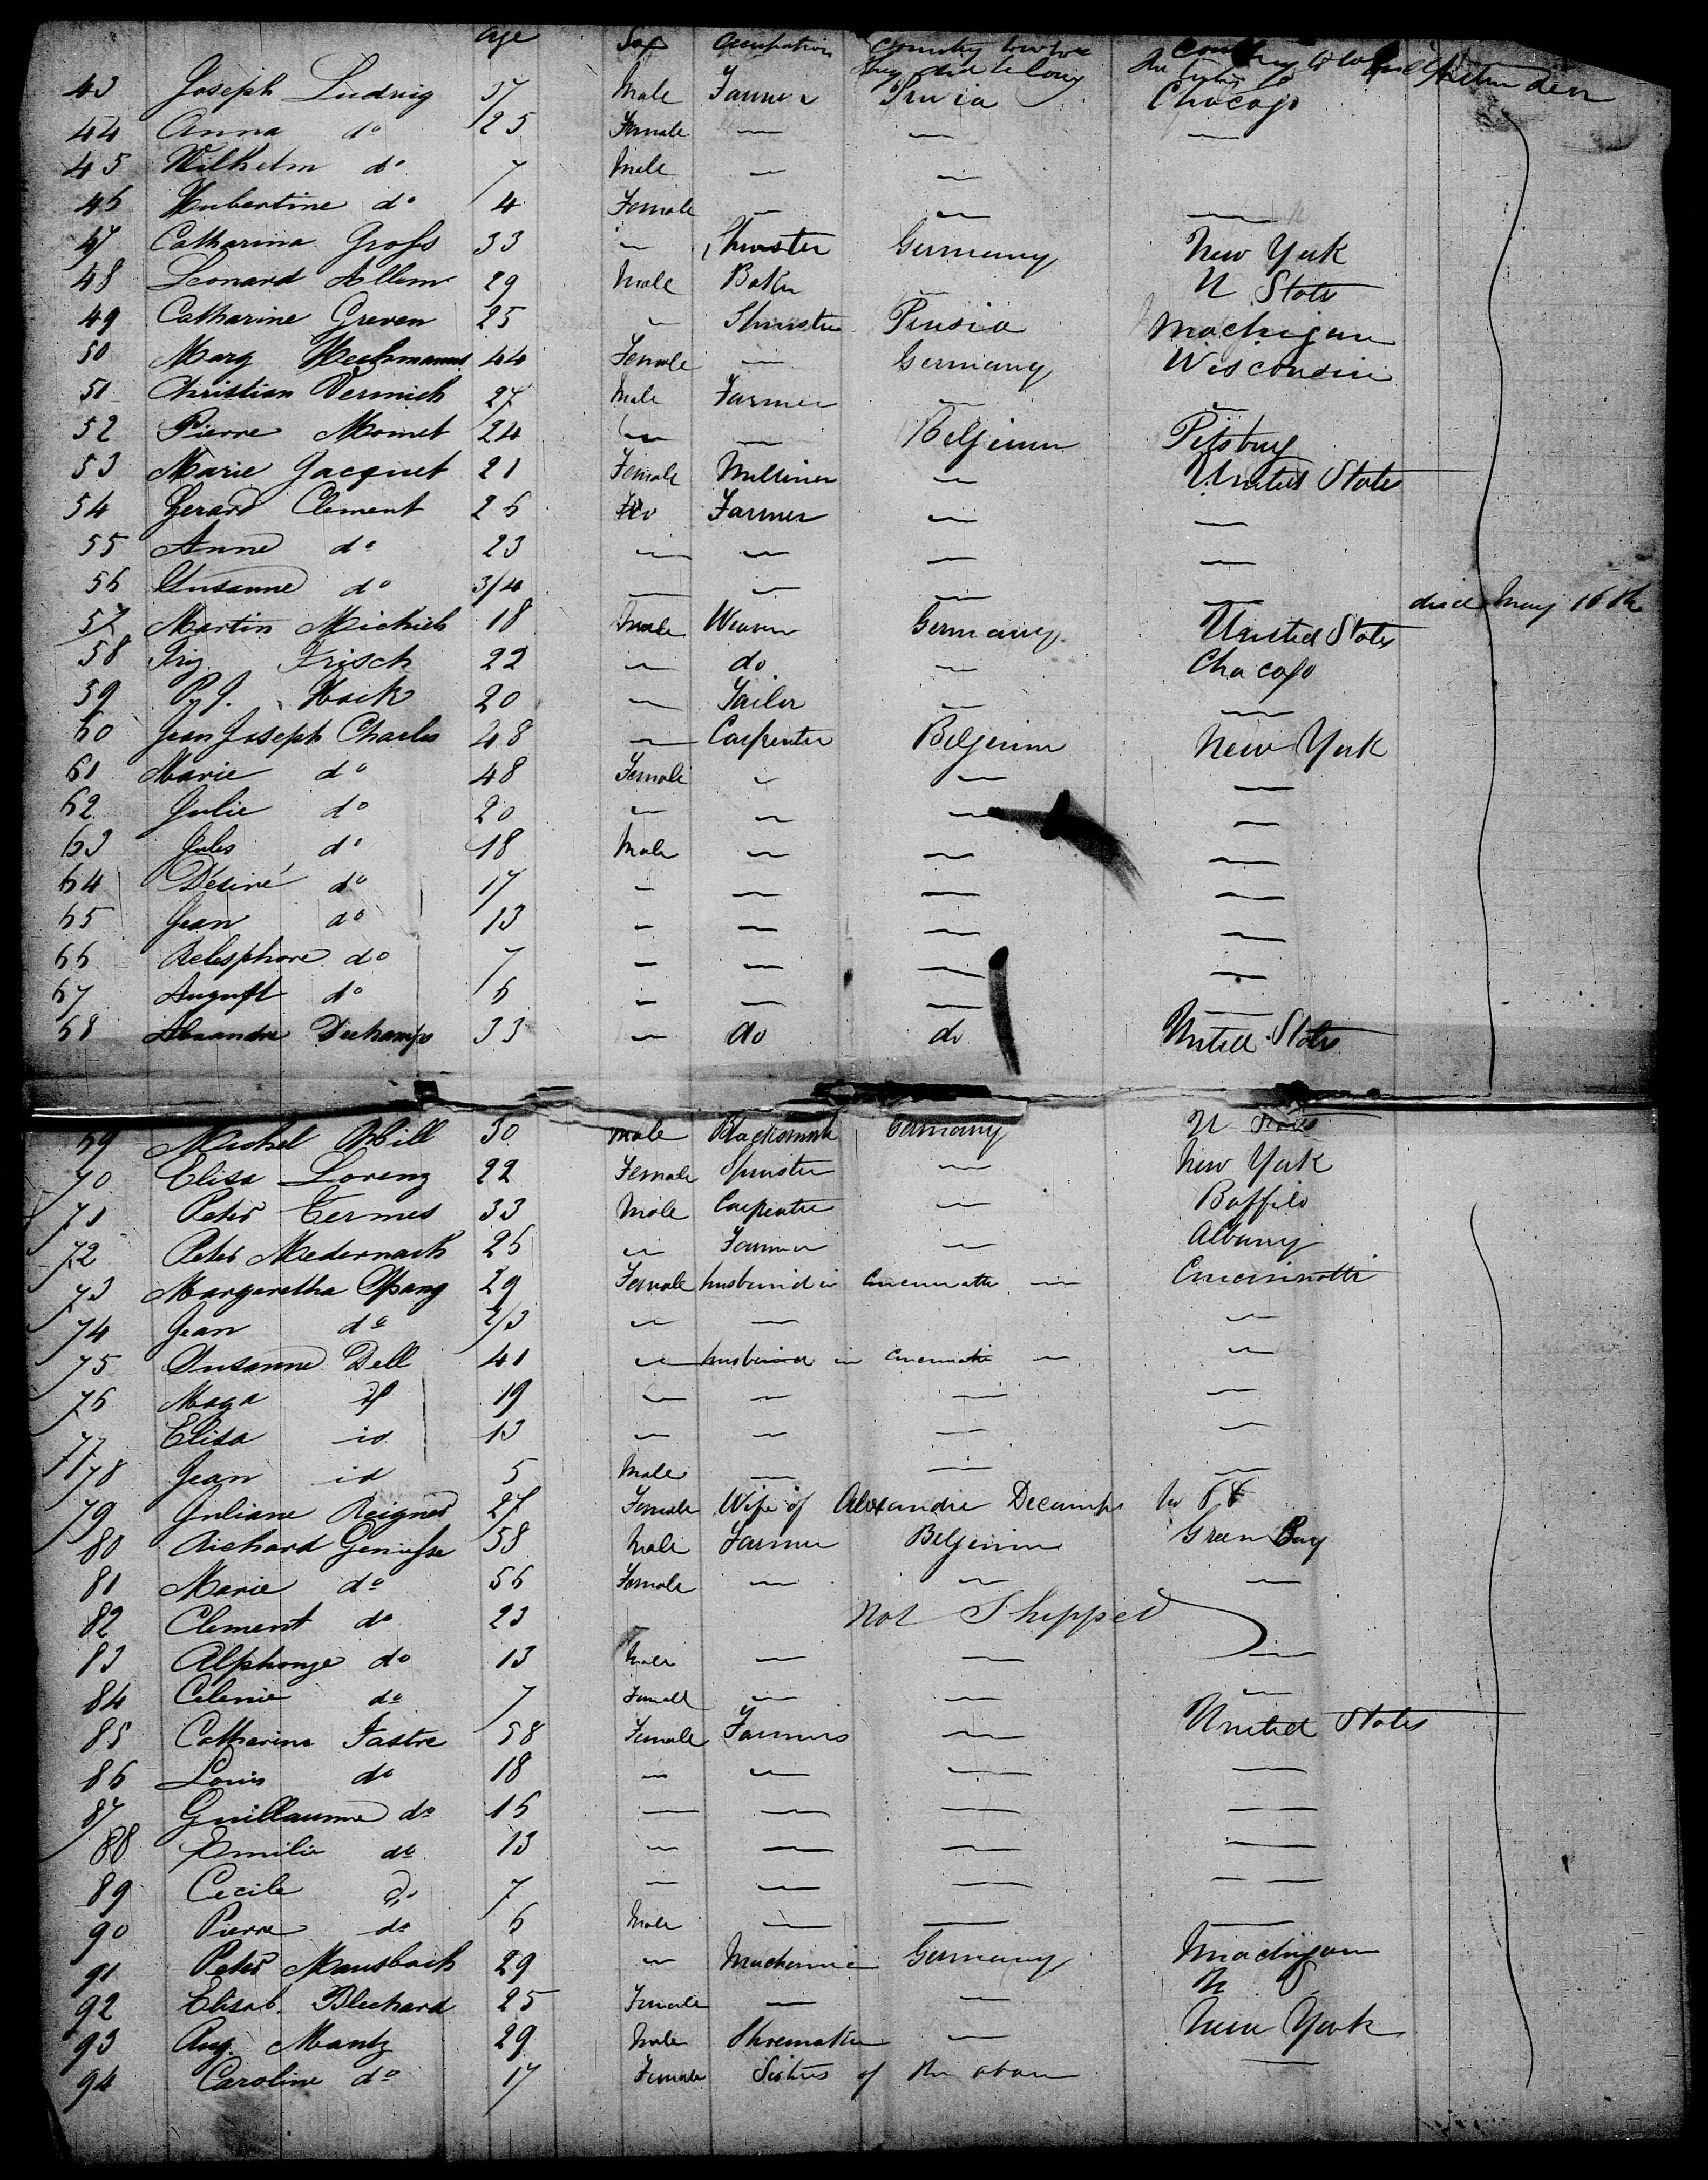 age Sex Occupation Country to which they did belong
43 Joseph Ludwig 37 Male Farmer Prusia Chacago
44 Anna do 25 Female — — —
45 Wilhelm do 7 Male — —
46 Hubertine do 4 Female — — —
47 Catharina Gross 33 — Spinster Germany New York
48 Leonard Allem 29 Male Baker U States
49 Catharine Greven 25 — Spinster Prusia Machigan
50 Marg 44 Female — Germany Wisconsin
51 Christian Vermich 27 Male Farmer — —
52 Pierre Momet 24 — — Belgium Pitsburg
53 Marie Jacquet 21 Female Milliner — United States
54 Gerard Clement 26 Farmer — —
55 Anne do 23 — — — —
56 Susanne do 3/4 — — — — died May 16th
57 Martin Michiels 18 Male Weaver Germany United States
58 Frisch 22 — do — Chacago
59 P. J. Hock 20 — Tailor — —
60 Jean Joseph Charles 48 — Carpenter Belgium New York
61 Marie do 48 Female — — —
62 Julie do 20 — — — —
63 Jules do 18 Male — — —
64 Désiré do 17 — — — —
65 Jean do 13 — — — —
66 Telesphore do 7 — — — —
67 August do 6 — — — —
68 Alexandre Dechamps 33 — do do United States
69 Michel Hill 30 Male Blacksmith Germany U States
70 Elisa Lorenz 22 Female Spinster — New York
71 Peter Termes 33 Male Carpenter — Buffilo
72 Peter Medernach 26 — Farmer — Albany
73 Margaretha Spang 29 Female husband in Cincinnatti — Cincinnatti
74 Jean do 2/3 — — —
75 Susanne Dell 41 — husband in Cincinnatti — —
76 Maga id 19 — — — —
77 Elisa id 13 — — — —
78 Jean id 5 Male — — —
79 Juliane Reignes 27 Female Wife of Alexandre Decamps No 68
80 Richard Geniesse 58 Male Farmer Belgium Green Bay
81 Marie do 56 Female — — —
82 Clement do 23 Not Shipped
83 Alphonse do 13 Male — — —
84 Celenie do 7 Female — — —
85 Catherine Fastre 58 Female Farmers — United States
86 Louis do 18 — — — —
87 Guillaume do 16 — — — —
88 Emilie do 13 — — — —
89 Cecile do 7 — — — —
90 Pierre do 6 Male — — —
91 Peter Mansbach 29 — Mechanic Germany Machigan
92 Elisab. Blechard 25 Female — — U S
93 Aug. Mantz 29 Male Shoemaker — New York
94 Caroline do 17 Female Sisters of the above —